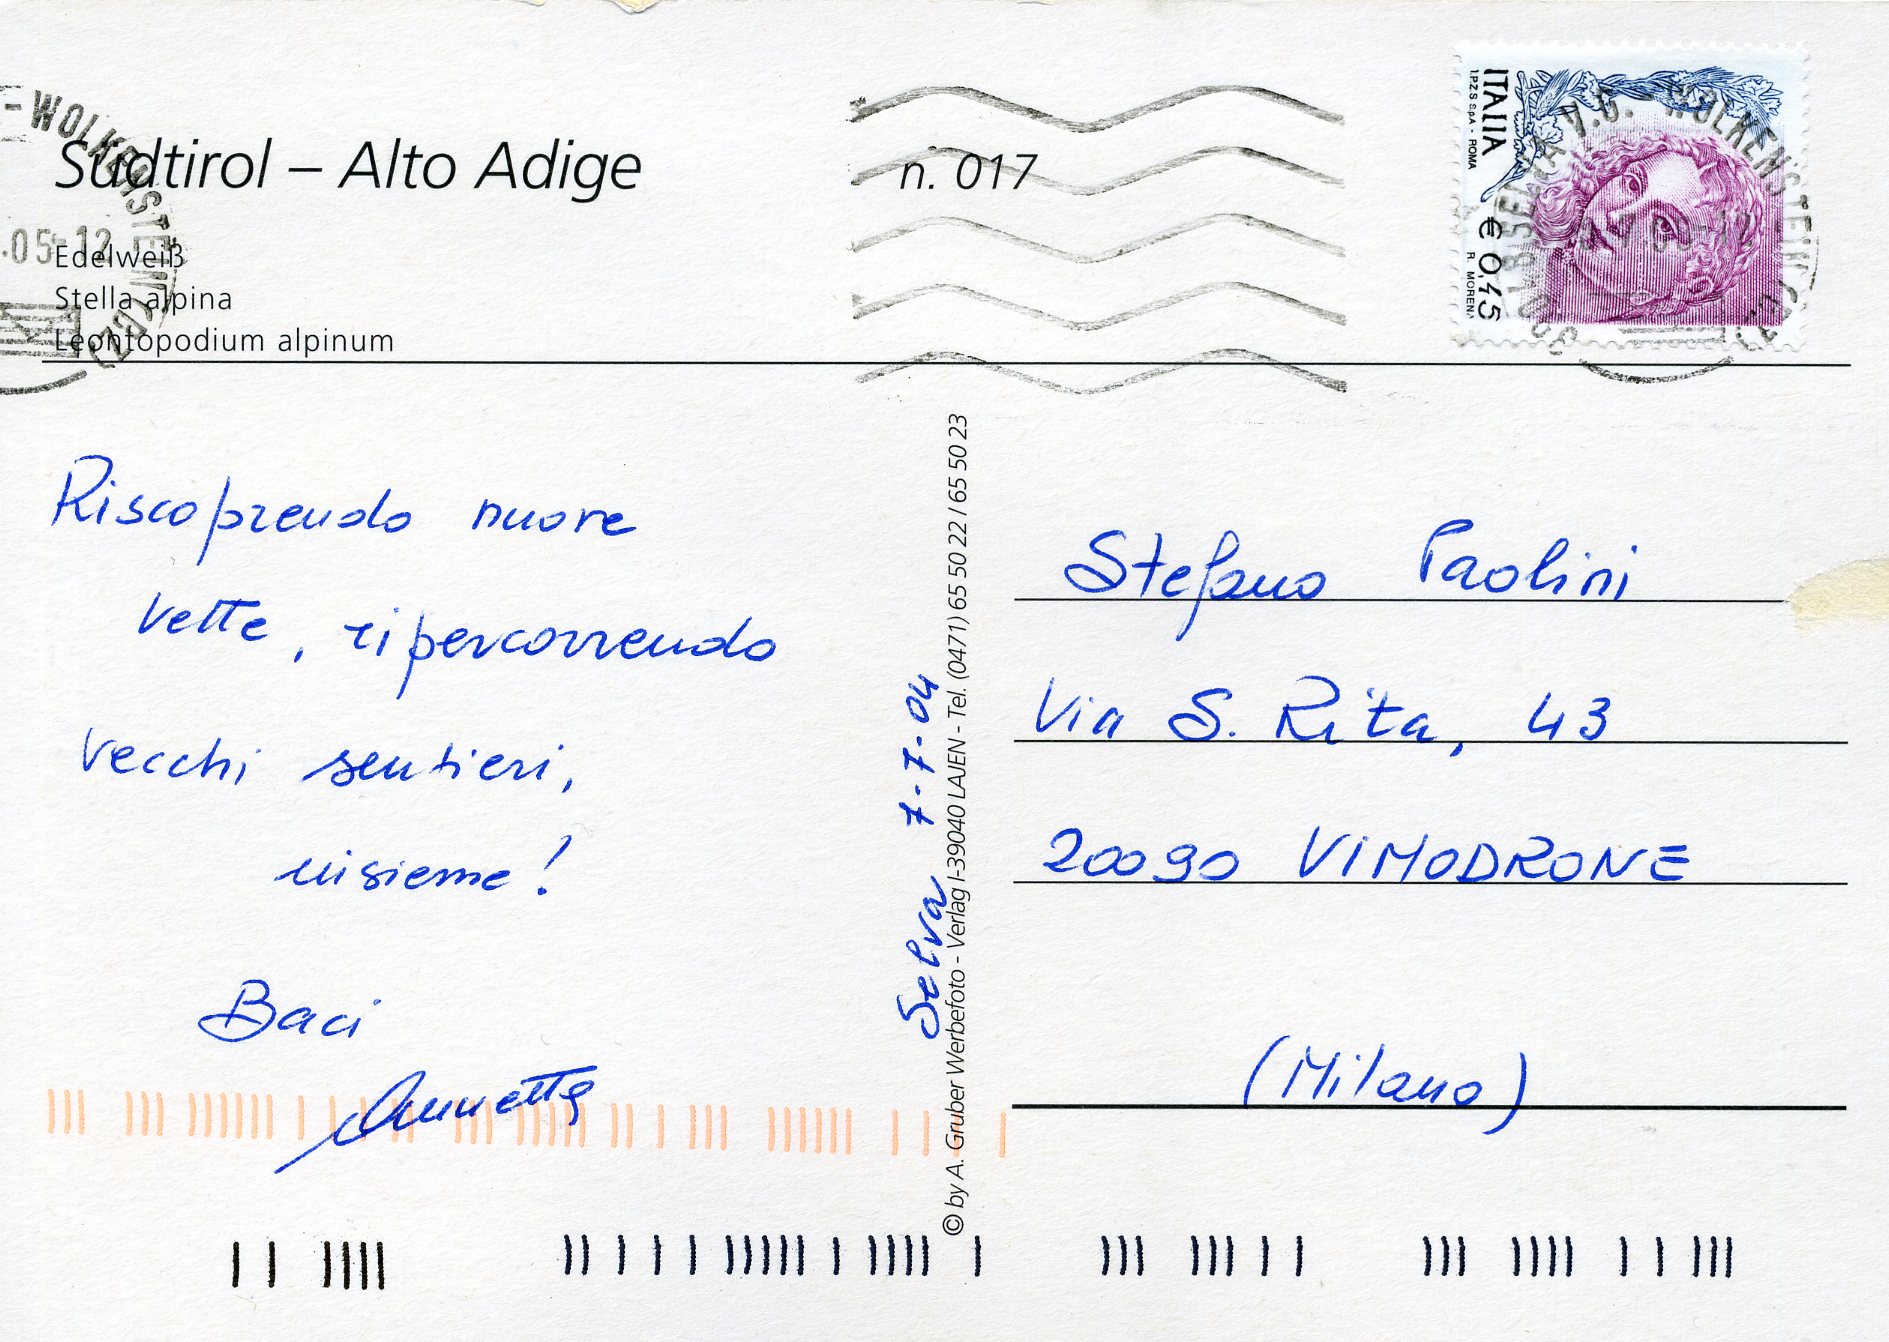 Südtirol – Alto Adige
n. 017
Edelweiß
Stella alpina
Leontopodium alpinum
-WOLKENSTEIN (BZ)
.05-12
ITALIA
I.P.Z.S. S.p.A. - ROMA
€ 0,45
R. MORENA
WOLKENSTEIN
Riscoprendo nuove
vette, ripercorrendo
vecchi sentieri,
insieme!
Baci
Annetta
Selva 7-7-04
© by A. Gruber Werbefoto - Verlag I-39040 LAJEN - Tel. (0471) 65 50 22 / 65 50 23
Stefano Paolini
Via S. Rita, 43
20090 VIMODRONE
(Milano)